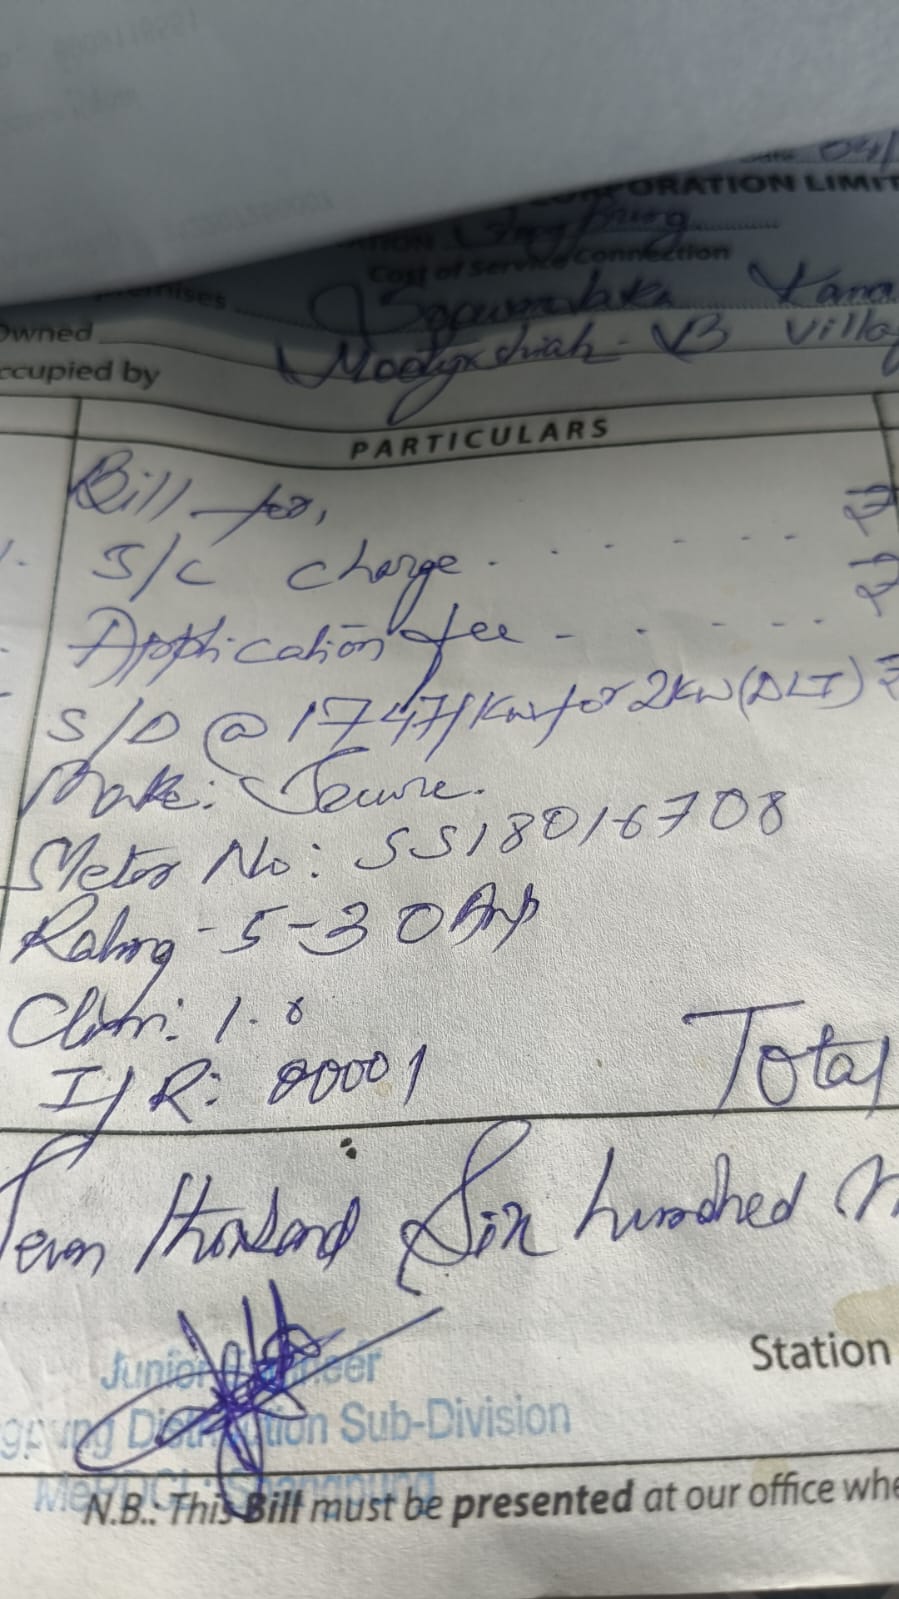 04/
CORPORATION LIMIT
Cost of Service Connection
premises
Owned
Occupied by Mootyrshiah - VB Villa
PARTICULARS
Bill for,
S/C charge. . . . . . . ₹
Application fee - . . . . . ₹
S/D @ 1747/Kw for 2Kw (DLT) ₹
Make: Secure.
Meter No: SS18016708
Rating - 5-30 Amp
I/R: 00001
Total
Thousand Six hundred
Junior Engineer
Distribution Sub-Division
MePDCL: Shangpung
Station
N.B.: This Bill must be presented at our office whe